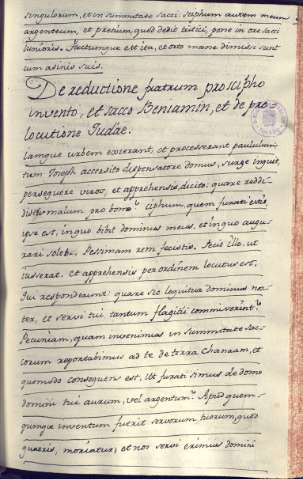 singulorum, et in summitate sacci sciphum autem meum
argenteum, et pretium, quod dedit tritici, pone in ore sacci
iunioris. Factumque est ita, et orto mane dimissi sunt
cum asinis suis.
De reductione fratrum pro scipho
invento, et sacco Beniamin, et de pro
locutione Judae.
Iamque urbem exierant, et processerant paululum
tum Joseph accersito dispensatore domus, surge inquit,
persequere viros, et apprehensis dicito: quare reddi
distis malum pro bono? ciphum, quem furati estis,
ipse est, in quo bibit dominus meus, et in quo augu
rari solet. Pessimam rem fecistis. Fecit ille, ut
iusserat. et apprehensis per ordinem locutus est.
Qui responderunt quare sic loquitur dominus nos
ter, et servi tui tantum flagitii commiserint?
Pecuniam, quam invenimus in summitate sac
corum reportabimus ad te de terra Chanaam, et
quomodo consequens est, ut furati simus de domo
domini tui aurum, vel argentum? Apud quem
cunque inventum fuerit servorum tuorum, quod
quaeris, moriatur, et nos servi erimus domini